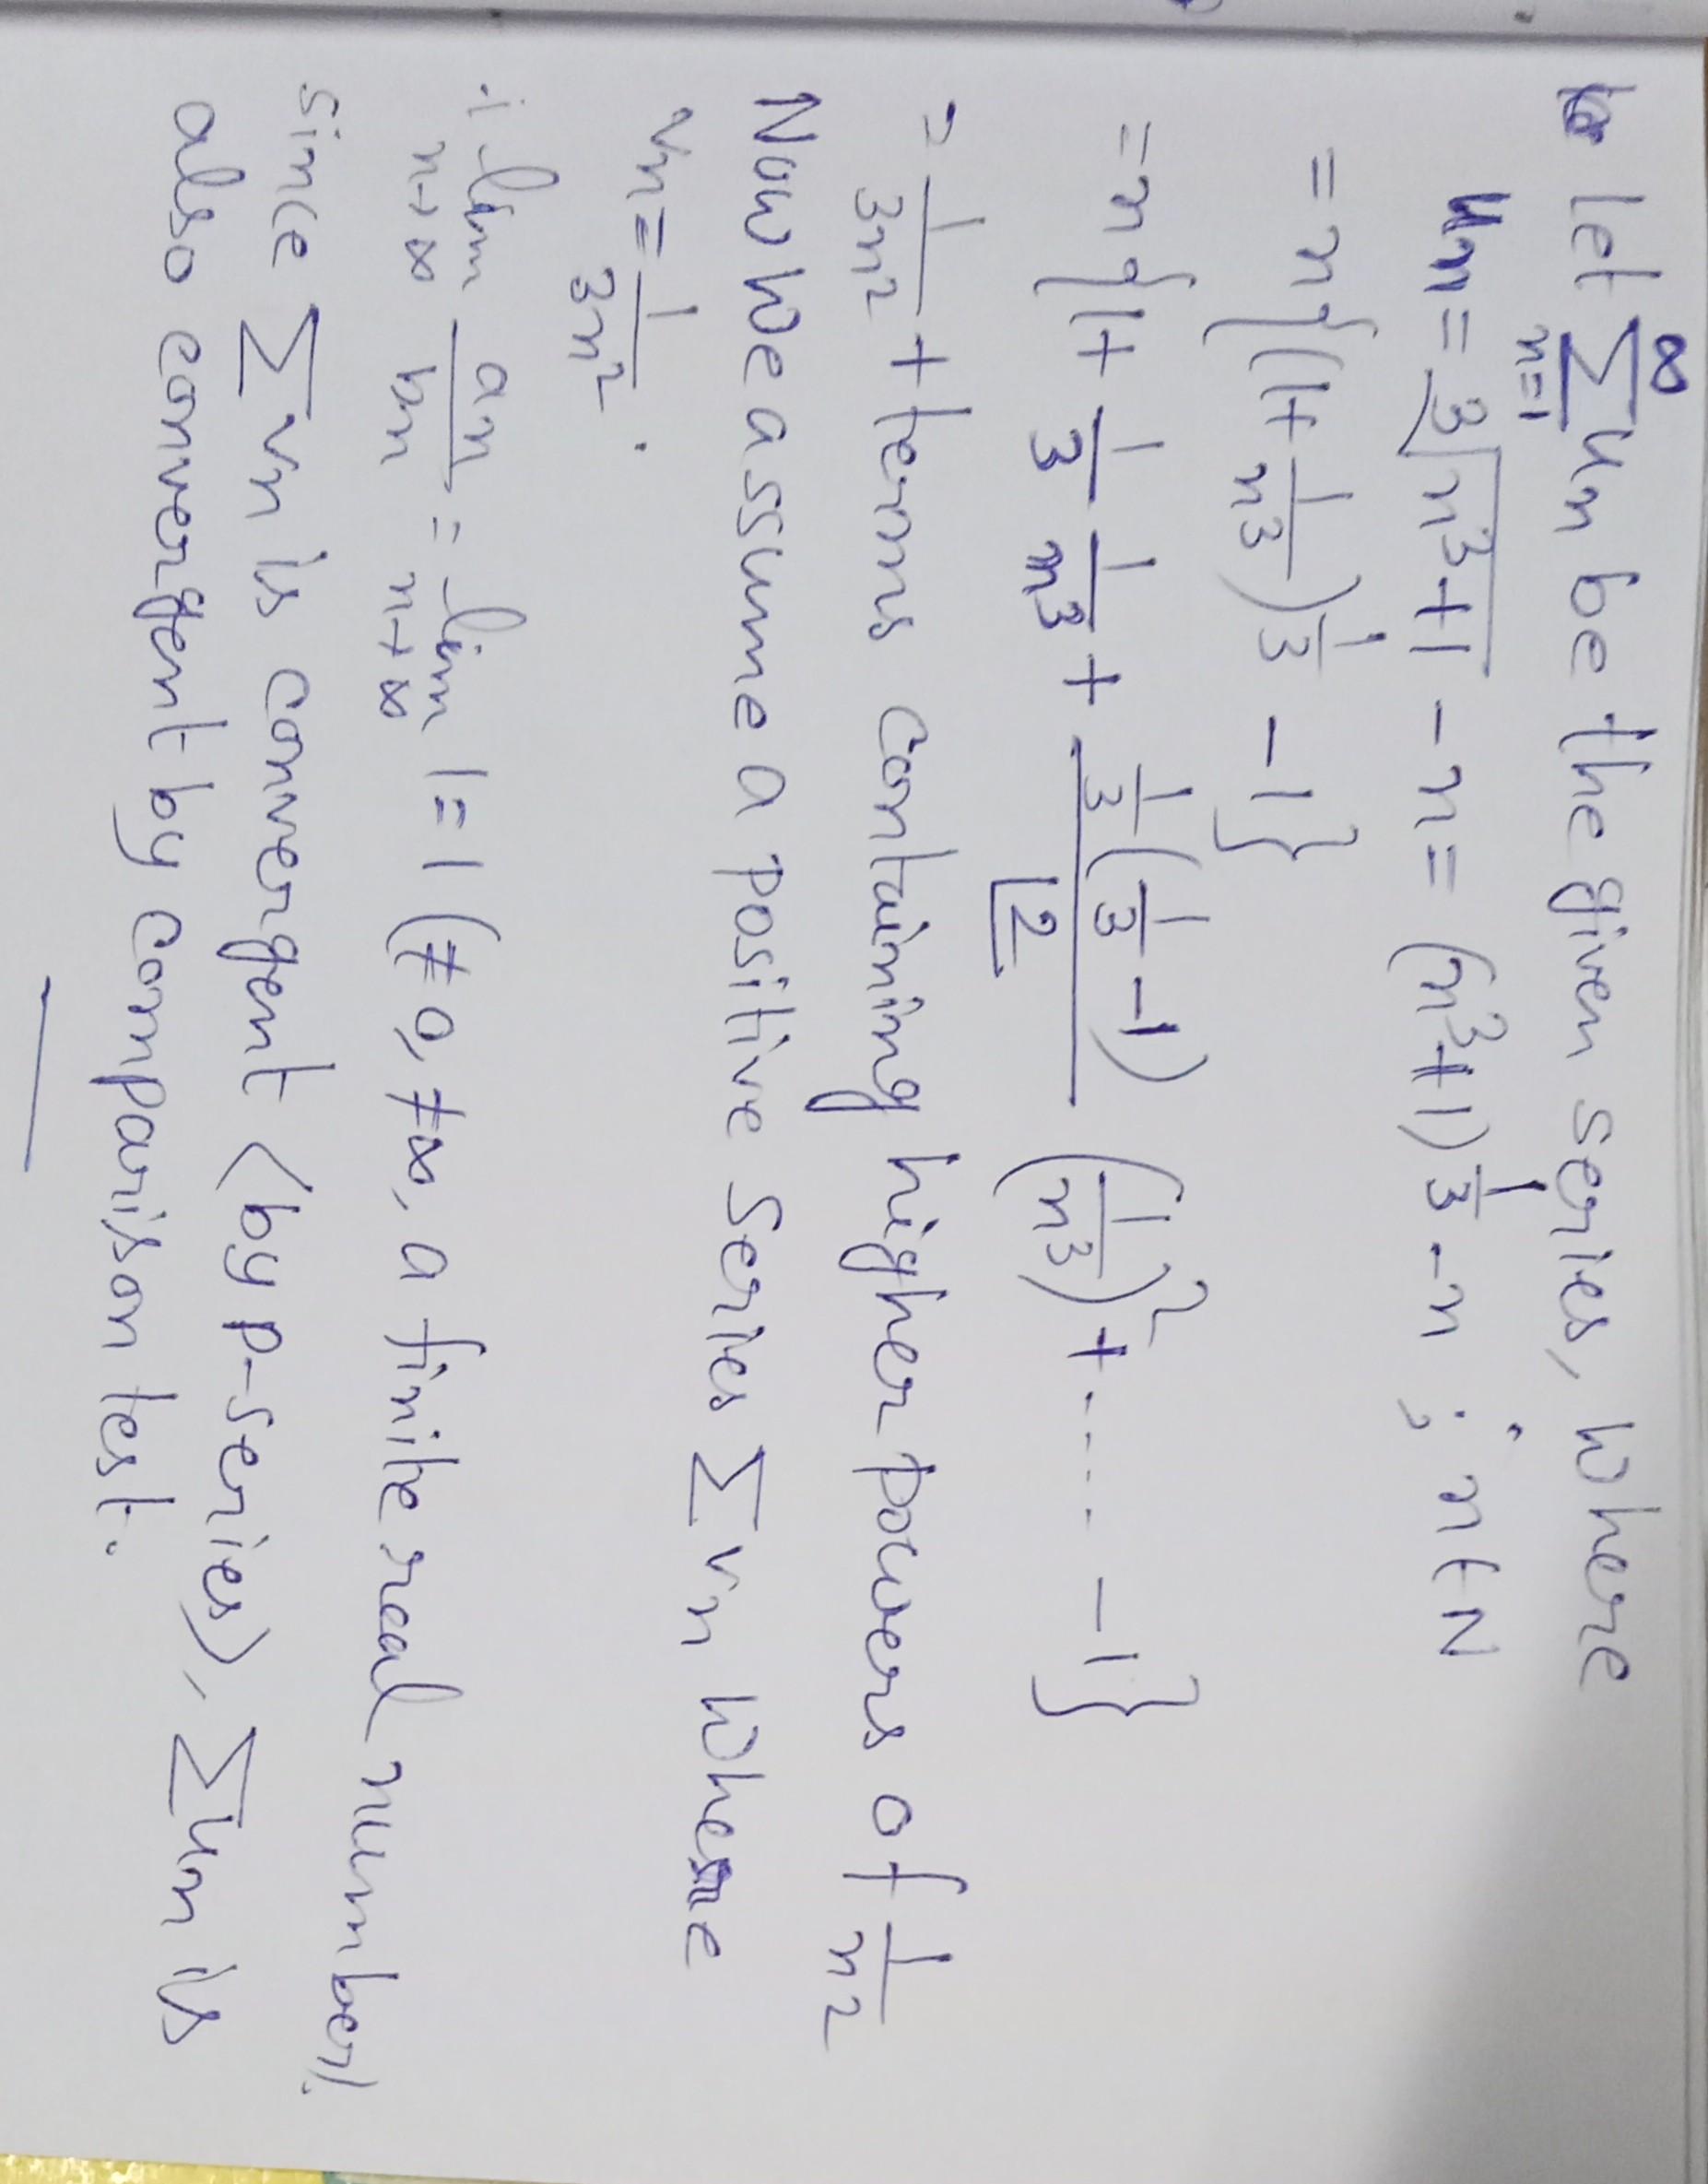 let ∞∑n=1 un be the given series, where
un = ∛(n³+1) - n = (n³+1)^(1/3) - n ; n∈N
= n{(1+1/n³)^(1/3) - 1}
= n{1 + 1/3 1/n³ + (1/3(1/3 - 1))/⌊2 (1/n³)² + .... - 1}
= 1/3n² + terms containing higher powers of 1/n²
Now we assume a positive series ∑vn where
vn = 1/3n² .
∴ lim n→∞ an/bn = lim n→∞ 1 = 1 (≠0, ≠∞, a finite real number).
since ∑vn is convergent <by p-series>, ∑un is
also convergent by comparison test.